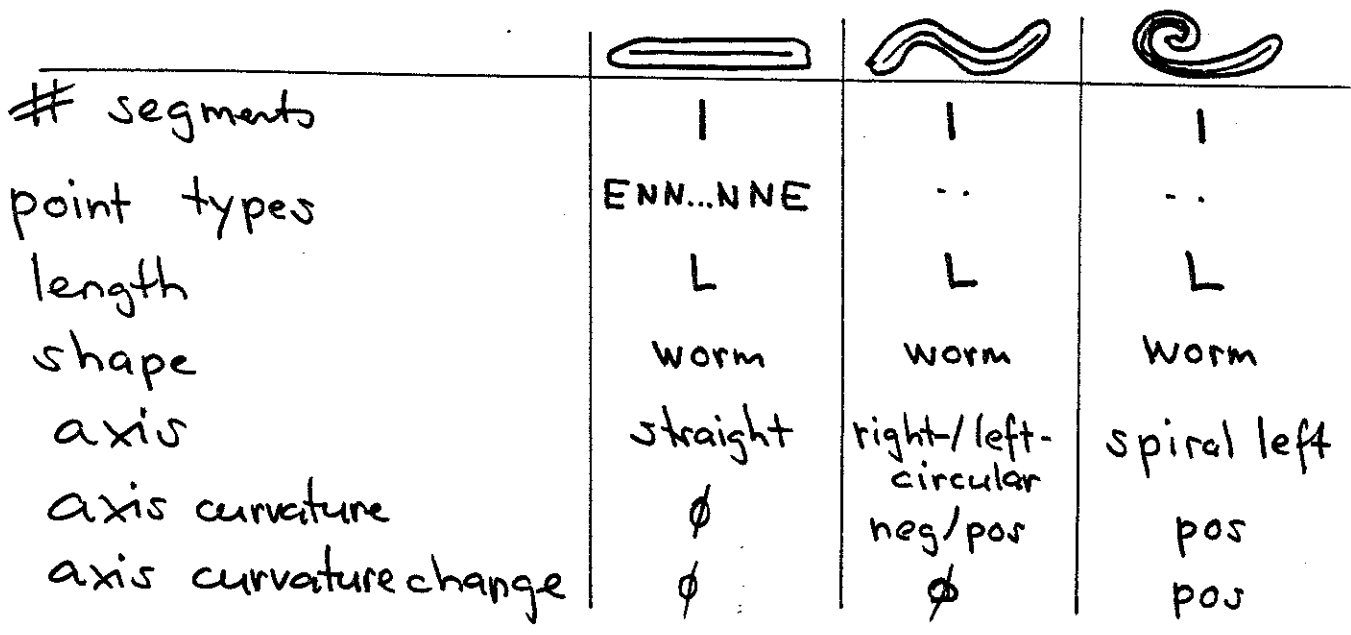 # segments 1 1 1
point types ENN...NNE .. ..
length L L L
shape worm worm worm
axis straight right/left- spiral left
circular
axis curvature ø neg/pos pos
axis curvature change ø ø pos